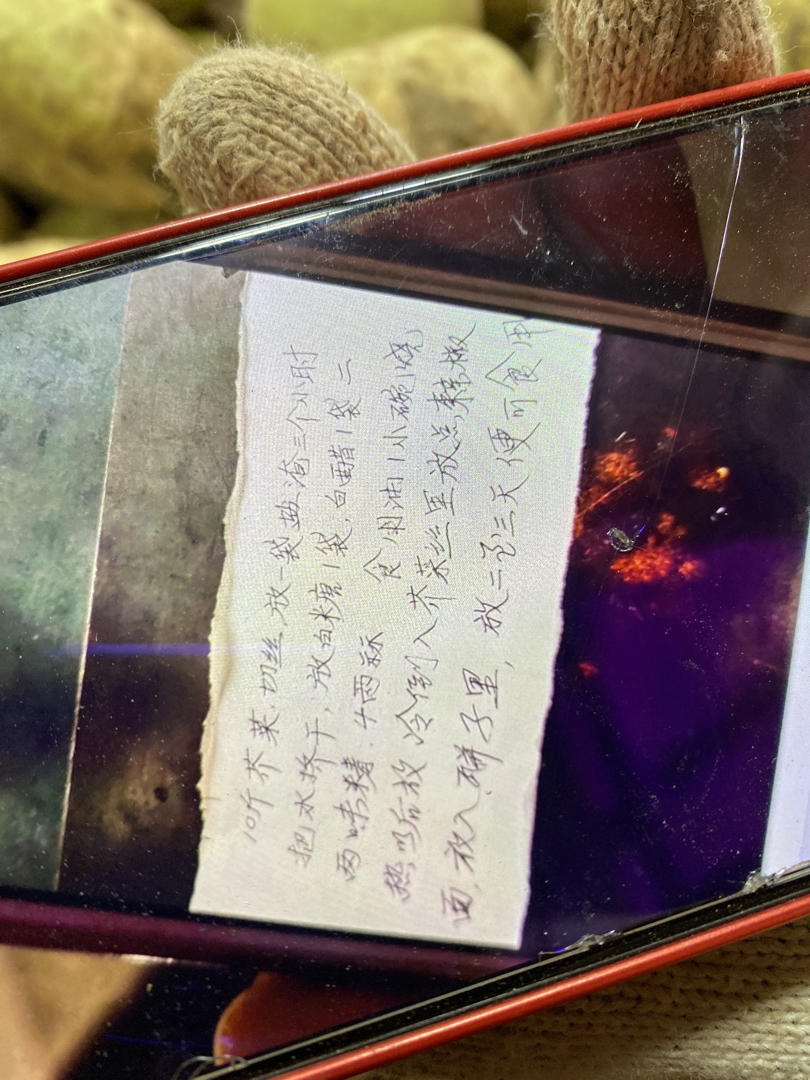 10斤芥菜.切丝,放一袋盐淹三个小时
把水拧干,放白糖1袋,白醋1袋 二
两味精.4两蒜 食用油1小碗烧
热以后放冷倒入芥菜丝里放点辣椒
面,放入瓶子里,放二至三天便可食用